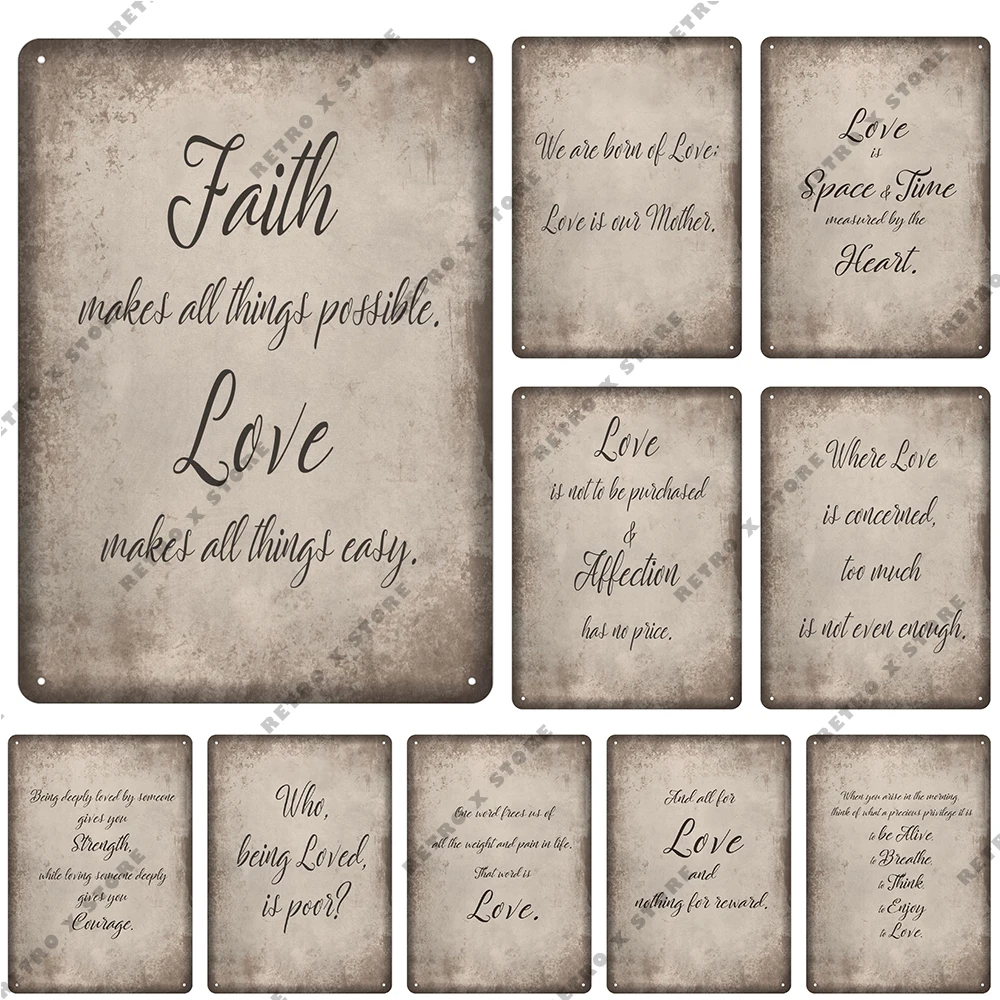 Faith
makes all things possible.
Love
makes all things easy.
We are born of Love;
Love is our Mother.
Love
is
Space & Time
measured by the
Heart.
Love
is not to be purchased
&
Affection
has no price.
Where Love
is concerned,
too much
is not even enough.
Being deeply loved by someone
gives you
Strength,
while loving someone deeply
gives you
Courage.
Who,
being Loved,
is poor?
One word frees us of
all the weight and pain in life.
That word is
Love.
And all for
Love
and
nothing for reward.
When you arise in the morning,
think of what a precious privilege it is
to be Alive,
to Breathe,
to Think,
to Enjoy
to Love.
RETRO X STORE